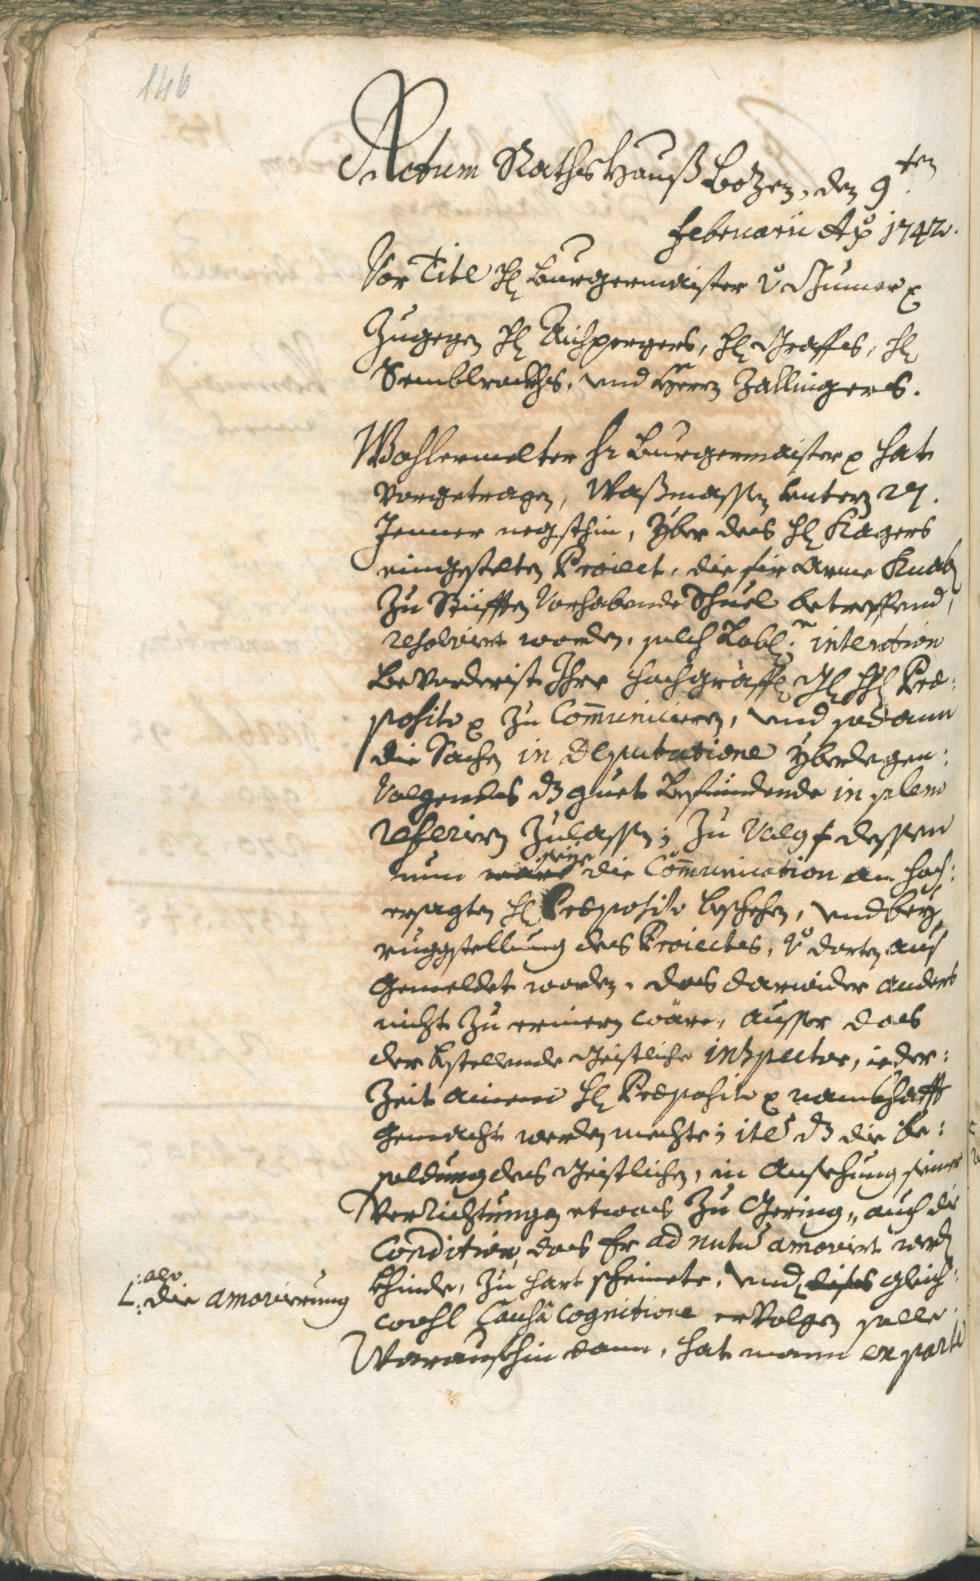 146
Actum Raths Hauß Bozen, den 9ten
Februarii Ao 1742.
Vor Titl H: Burgermaister v
Zugegen H: Aichpergers, H: Graffs, H:
Semblrockhs, und Herrn Zallingers.
Wohlermelter H: Burgermaister hat
vorgetragen, waßmassen untern 27.
Jenner negsthin, yber des H: Kagers
eingestelten Proiect, die fir arme Knab:
zu Stifften vorhabende Schuel betreffend,
resolviert worden, solch Lobl: intention
bevorderist Ihro Hochgräffl: H: Pre:
posito zu Communiciern, und sodann
die Sachen in Deputatione yberlegen:
volgendes dz guet befindende in pleno
referiren zulassen; zu volg dessen
nun seye die Communication an Hoch:
ersagten H: Preposito beschehen, und bey
ruggstellung des Proiectes, v dorten aus
gemeldet worden, das darwider anders
nichts zu erinern wäre, ausser das
der bestellende Geistliche inspector, ieder:
zeit ainem H: Preposito namhafft
gemacht werden mechte; item dz die be:
soldung des Geistlichen, in ansehung seiner
Verrichtungen etwas zu gering, auch die
Condition, das Er ad nutum amoviert werd
khinde, zu hart scheinete, und dises gleich:
also
die amovierung
wohl Causa cognitione ervolgen solle
Woraufhin dann, hat mann ex parte